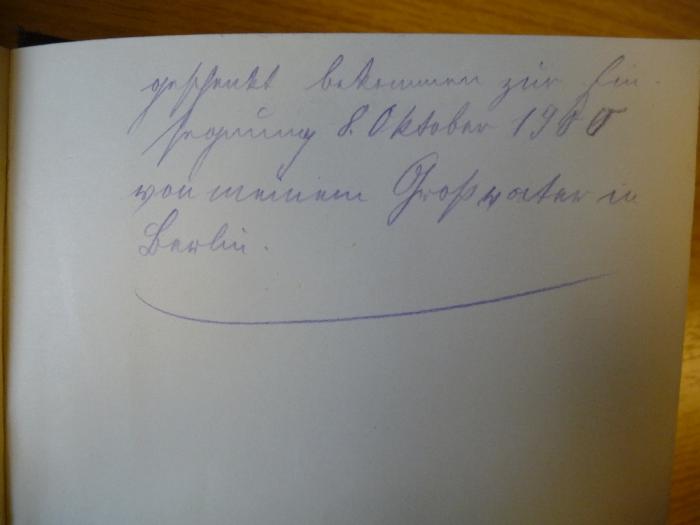 geschenkt bekommen zur Ein-
segnung 8. Oktober 1900
von meinem Großvater in
Berlin.